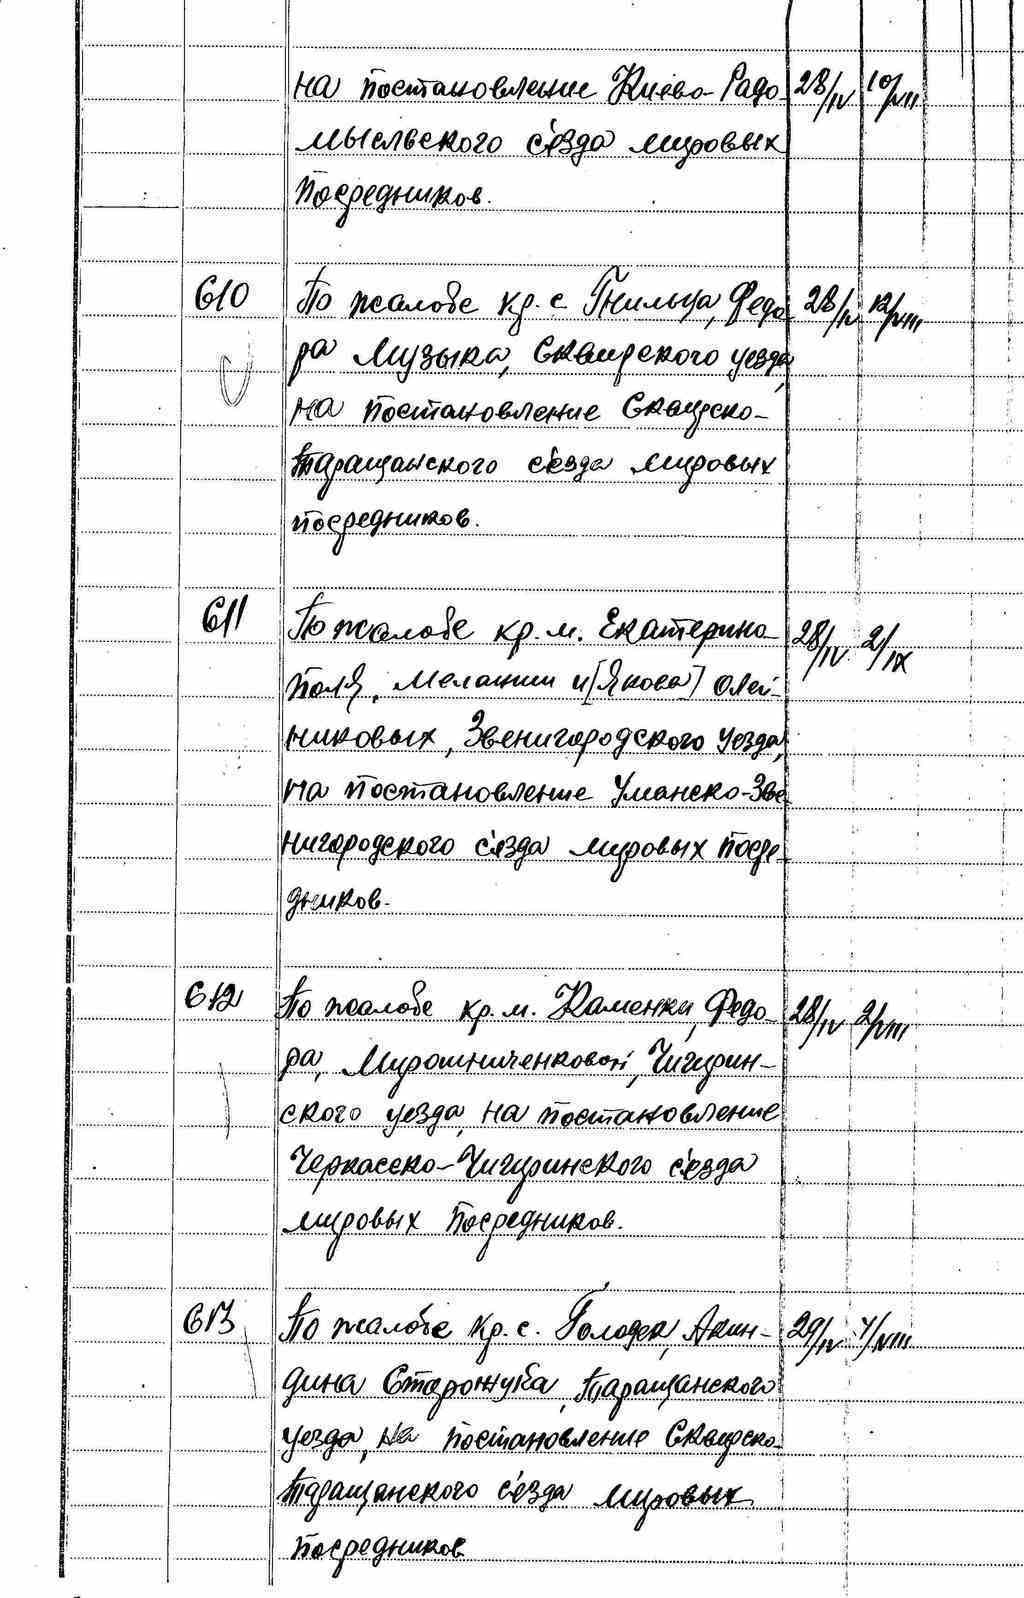 на постановление Киево-Радо- 28/IV 10/VIII
мысльского с'езда мировых
посредников.
610 По жалобе кр. с. Гнильца, Федо- 28/IV 12/VIII
ра Музыка, Сквирского уезда,
на постановление Сквирско-
Таращанского с'езда мировых
посредников.
611 По жалобе кр. м. Екатерино- 28/IV 2/IX
поля, Мелании и [Якова] Олей-
никовых, Звенигородского уезда,
на постановление Уманско-Зве-
нигородского с'езда мировых посре-
дников.
612 По жалобе кр. м. Каменки, Федо- 28/IV 2/VIII
ра, Мирошниченковой, Чигирин-
ского уезда, на постановление
Черкасско-Чигиринского с'езда
мировых посредников.
613 По жалобе кр. с. Акин- 29/IV 4/VIII
дина Сторожука, Таращанского
уезда, на постановление Сквирско-
Таращанского с'езда мировых
посредников